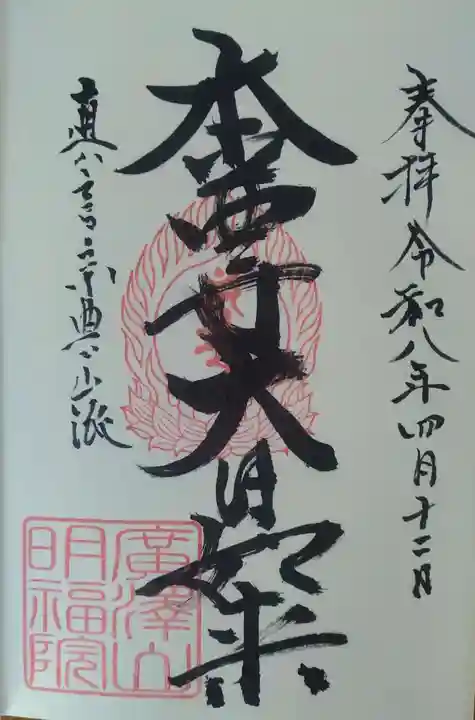 奉拝 令和八年四月十二日
本要大日如来
真言宗豊山派
廣澤山
明福院